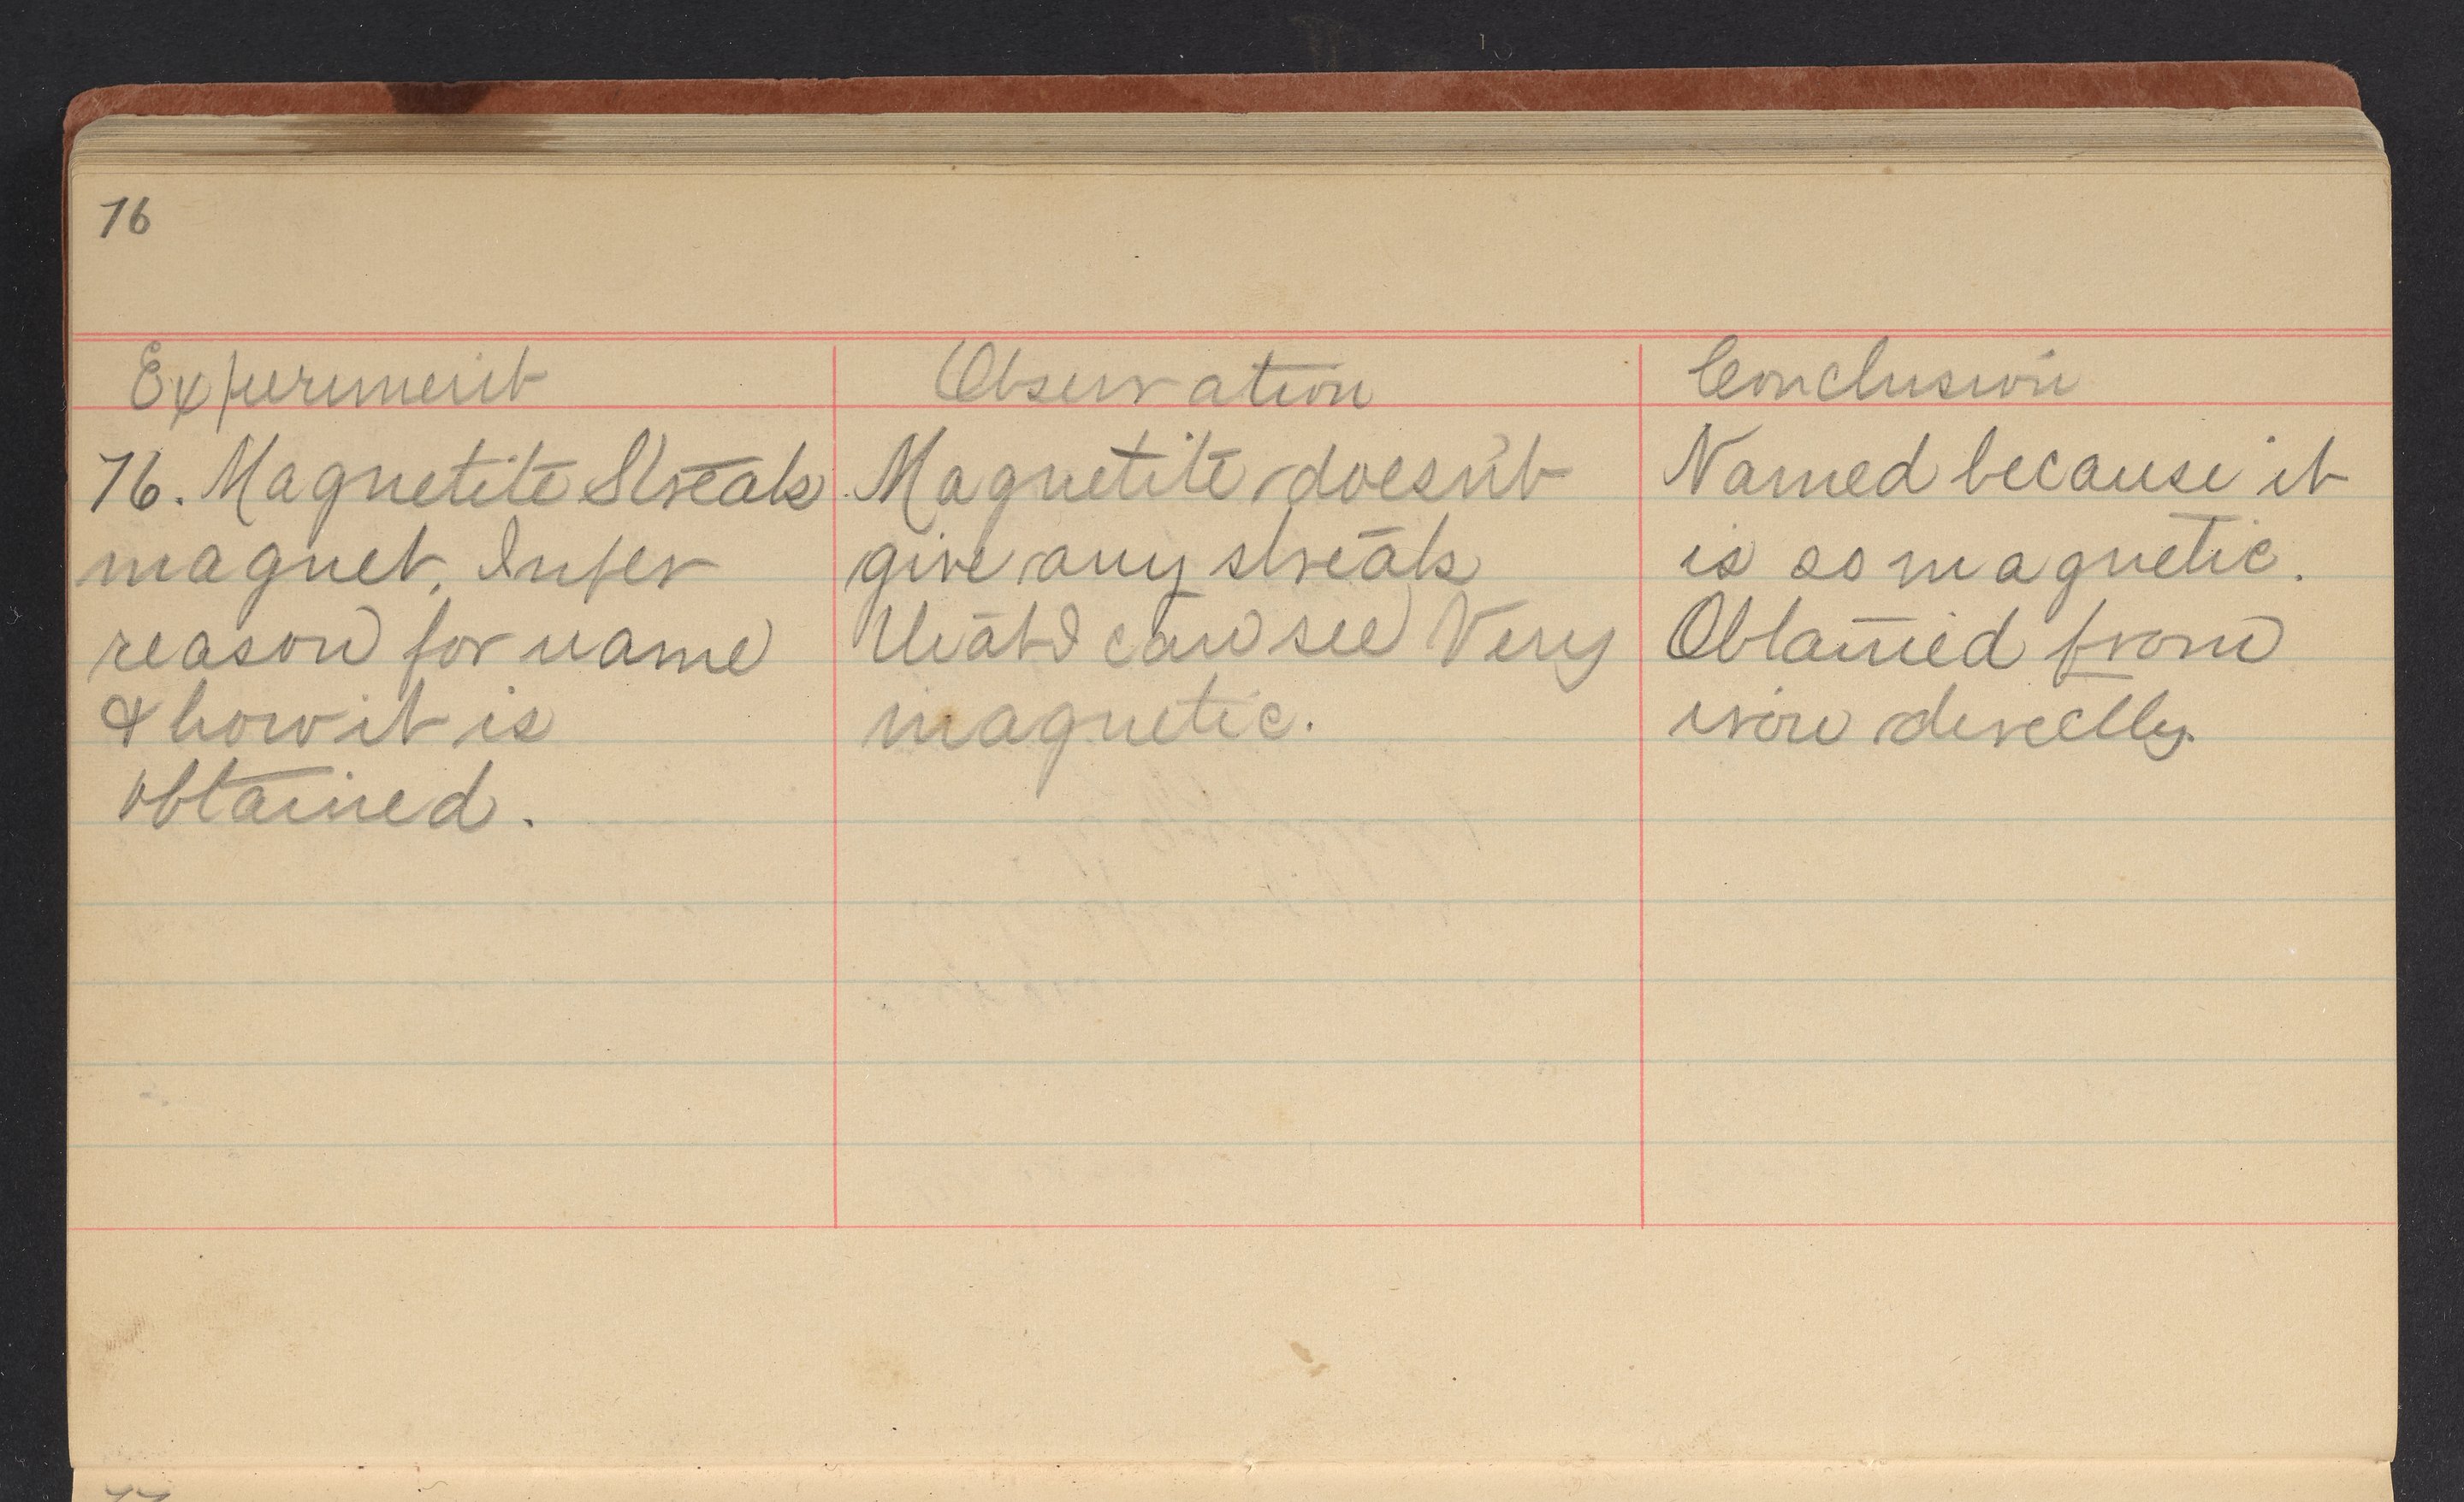 76
Experiment
76. Magnetite Streak
magnet. Infer
reason for name
& how it is
obtained.
Observation
Magnetite doesn't
give any streak
that I can see Very
magnetic.
Conclusion
Named because it
is so magnetic.
Obtained from
iron directly.